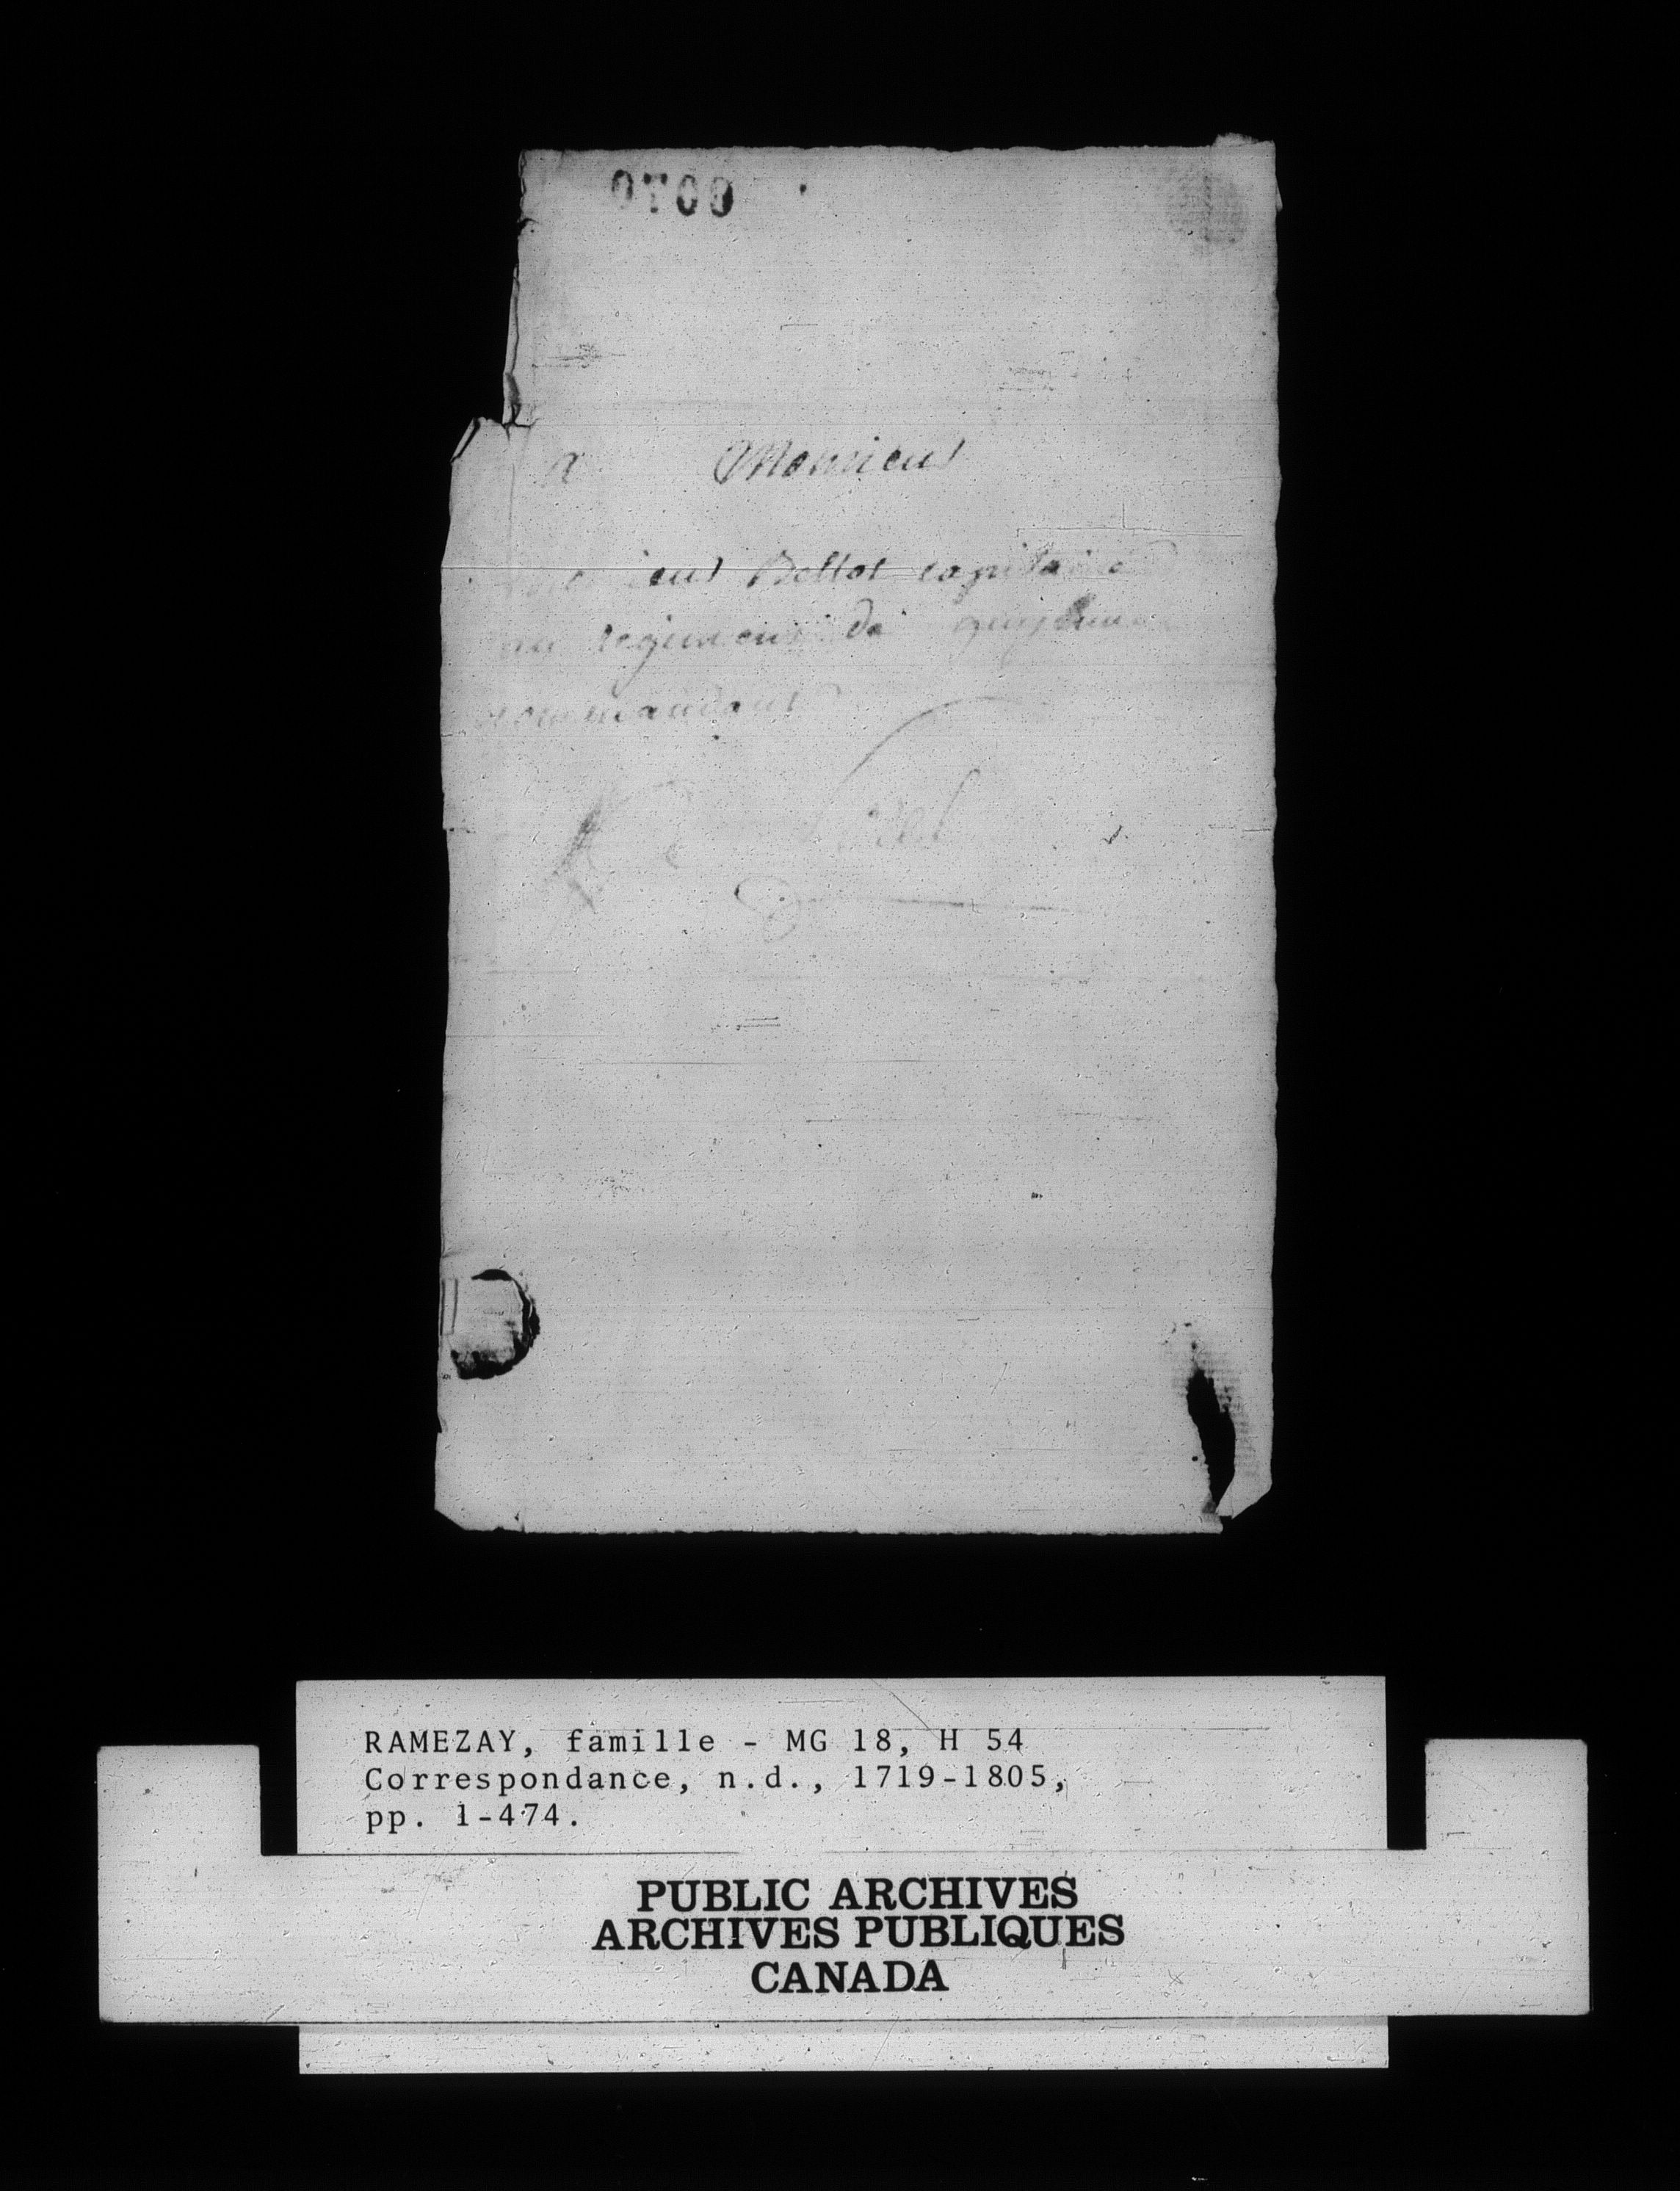 0709
a Monsieur
Monsieur Bellot capitaine
au regiment de guyenne
commandant
RAMEZAY, famille - MG 18, H 54
Correspondance, n.d., 1719-1805,
pp. 1-474.
PUBLIC ARCHIVES
ARCHIVES PUBLIQUES
CANADA